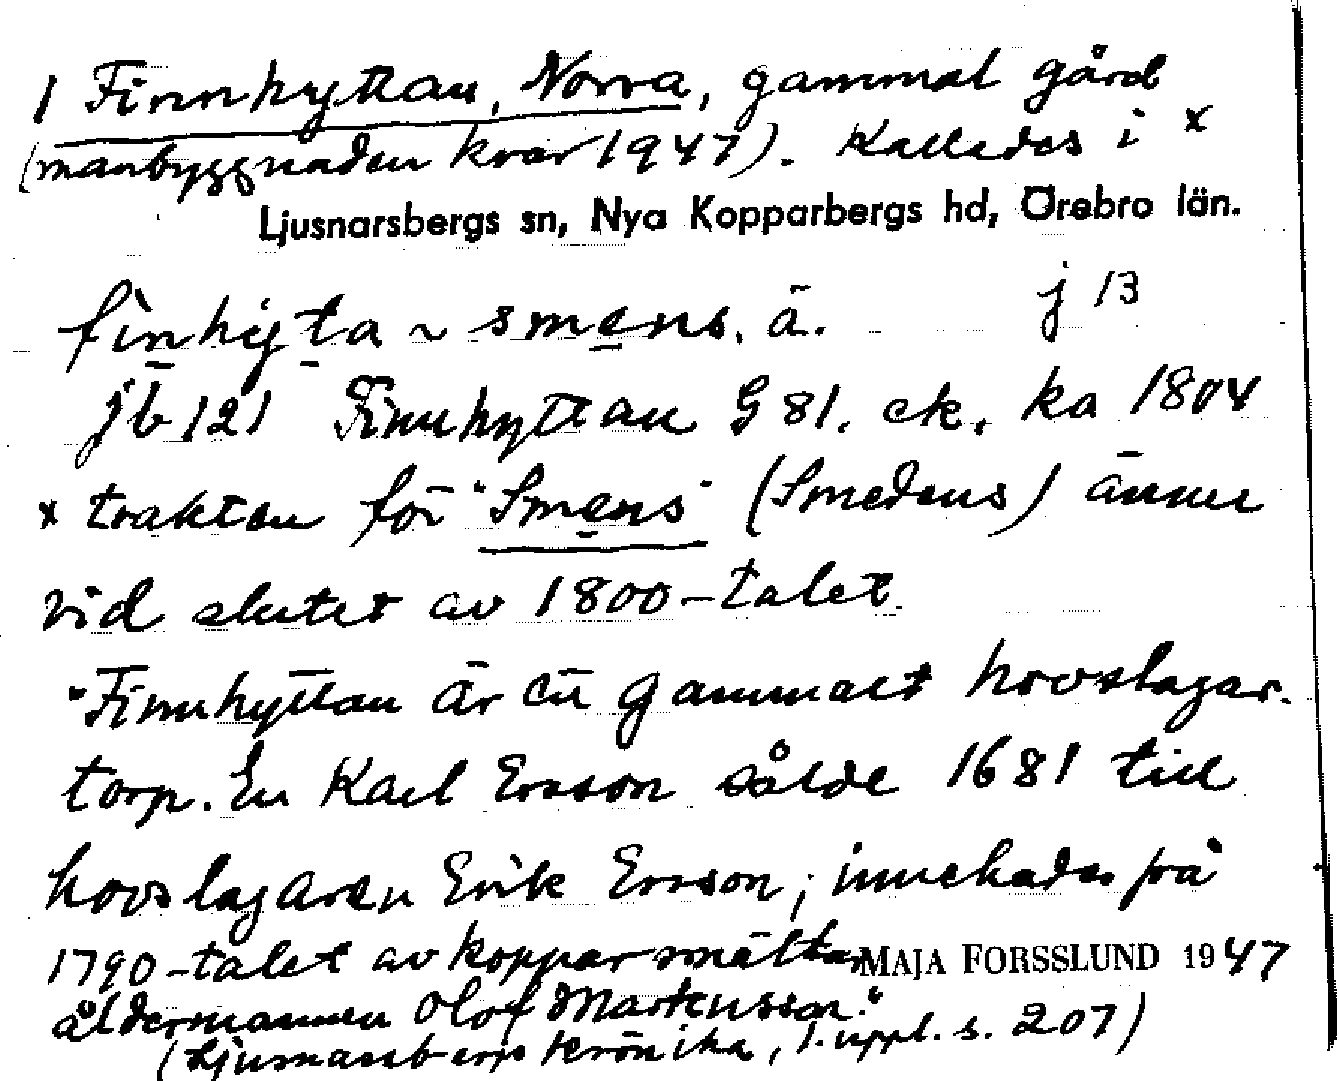 1 Finnhyttan, Norra, gammal gård
(manbyggnaden kvar 1947). Kallades i x
Ljusnarsbergs sn, Nya Kopparbergs hd, Örebro län.
finhyta ~ smens. ä. j 13
jb 121 Finnhyttan G 81. ek. ka 1804
x trakten för "Smens" (Smedens) ännu
vid slutet av 1800-talet.
"Finnhyttan är ett gammalt hovslagar-
torp. En Karl Ersson sålde 1681 till
hovslagaren Erik Ersson; innehades på
1790-talet av kopparsmältar
MAJA FORSSLUND 1947
åldermannen Olof Mårtensson."
(Ljusnarsbergs krönika, 1. uppl. s. 207)